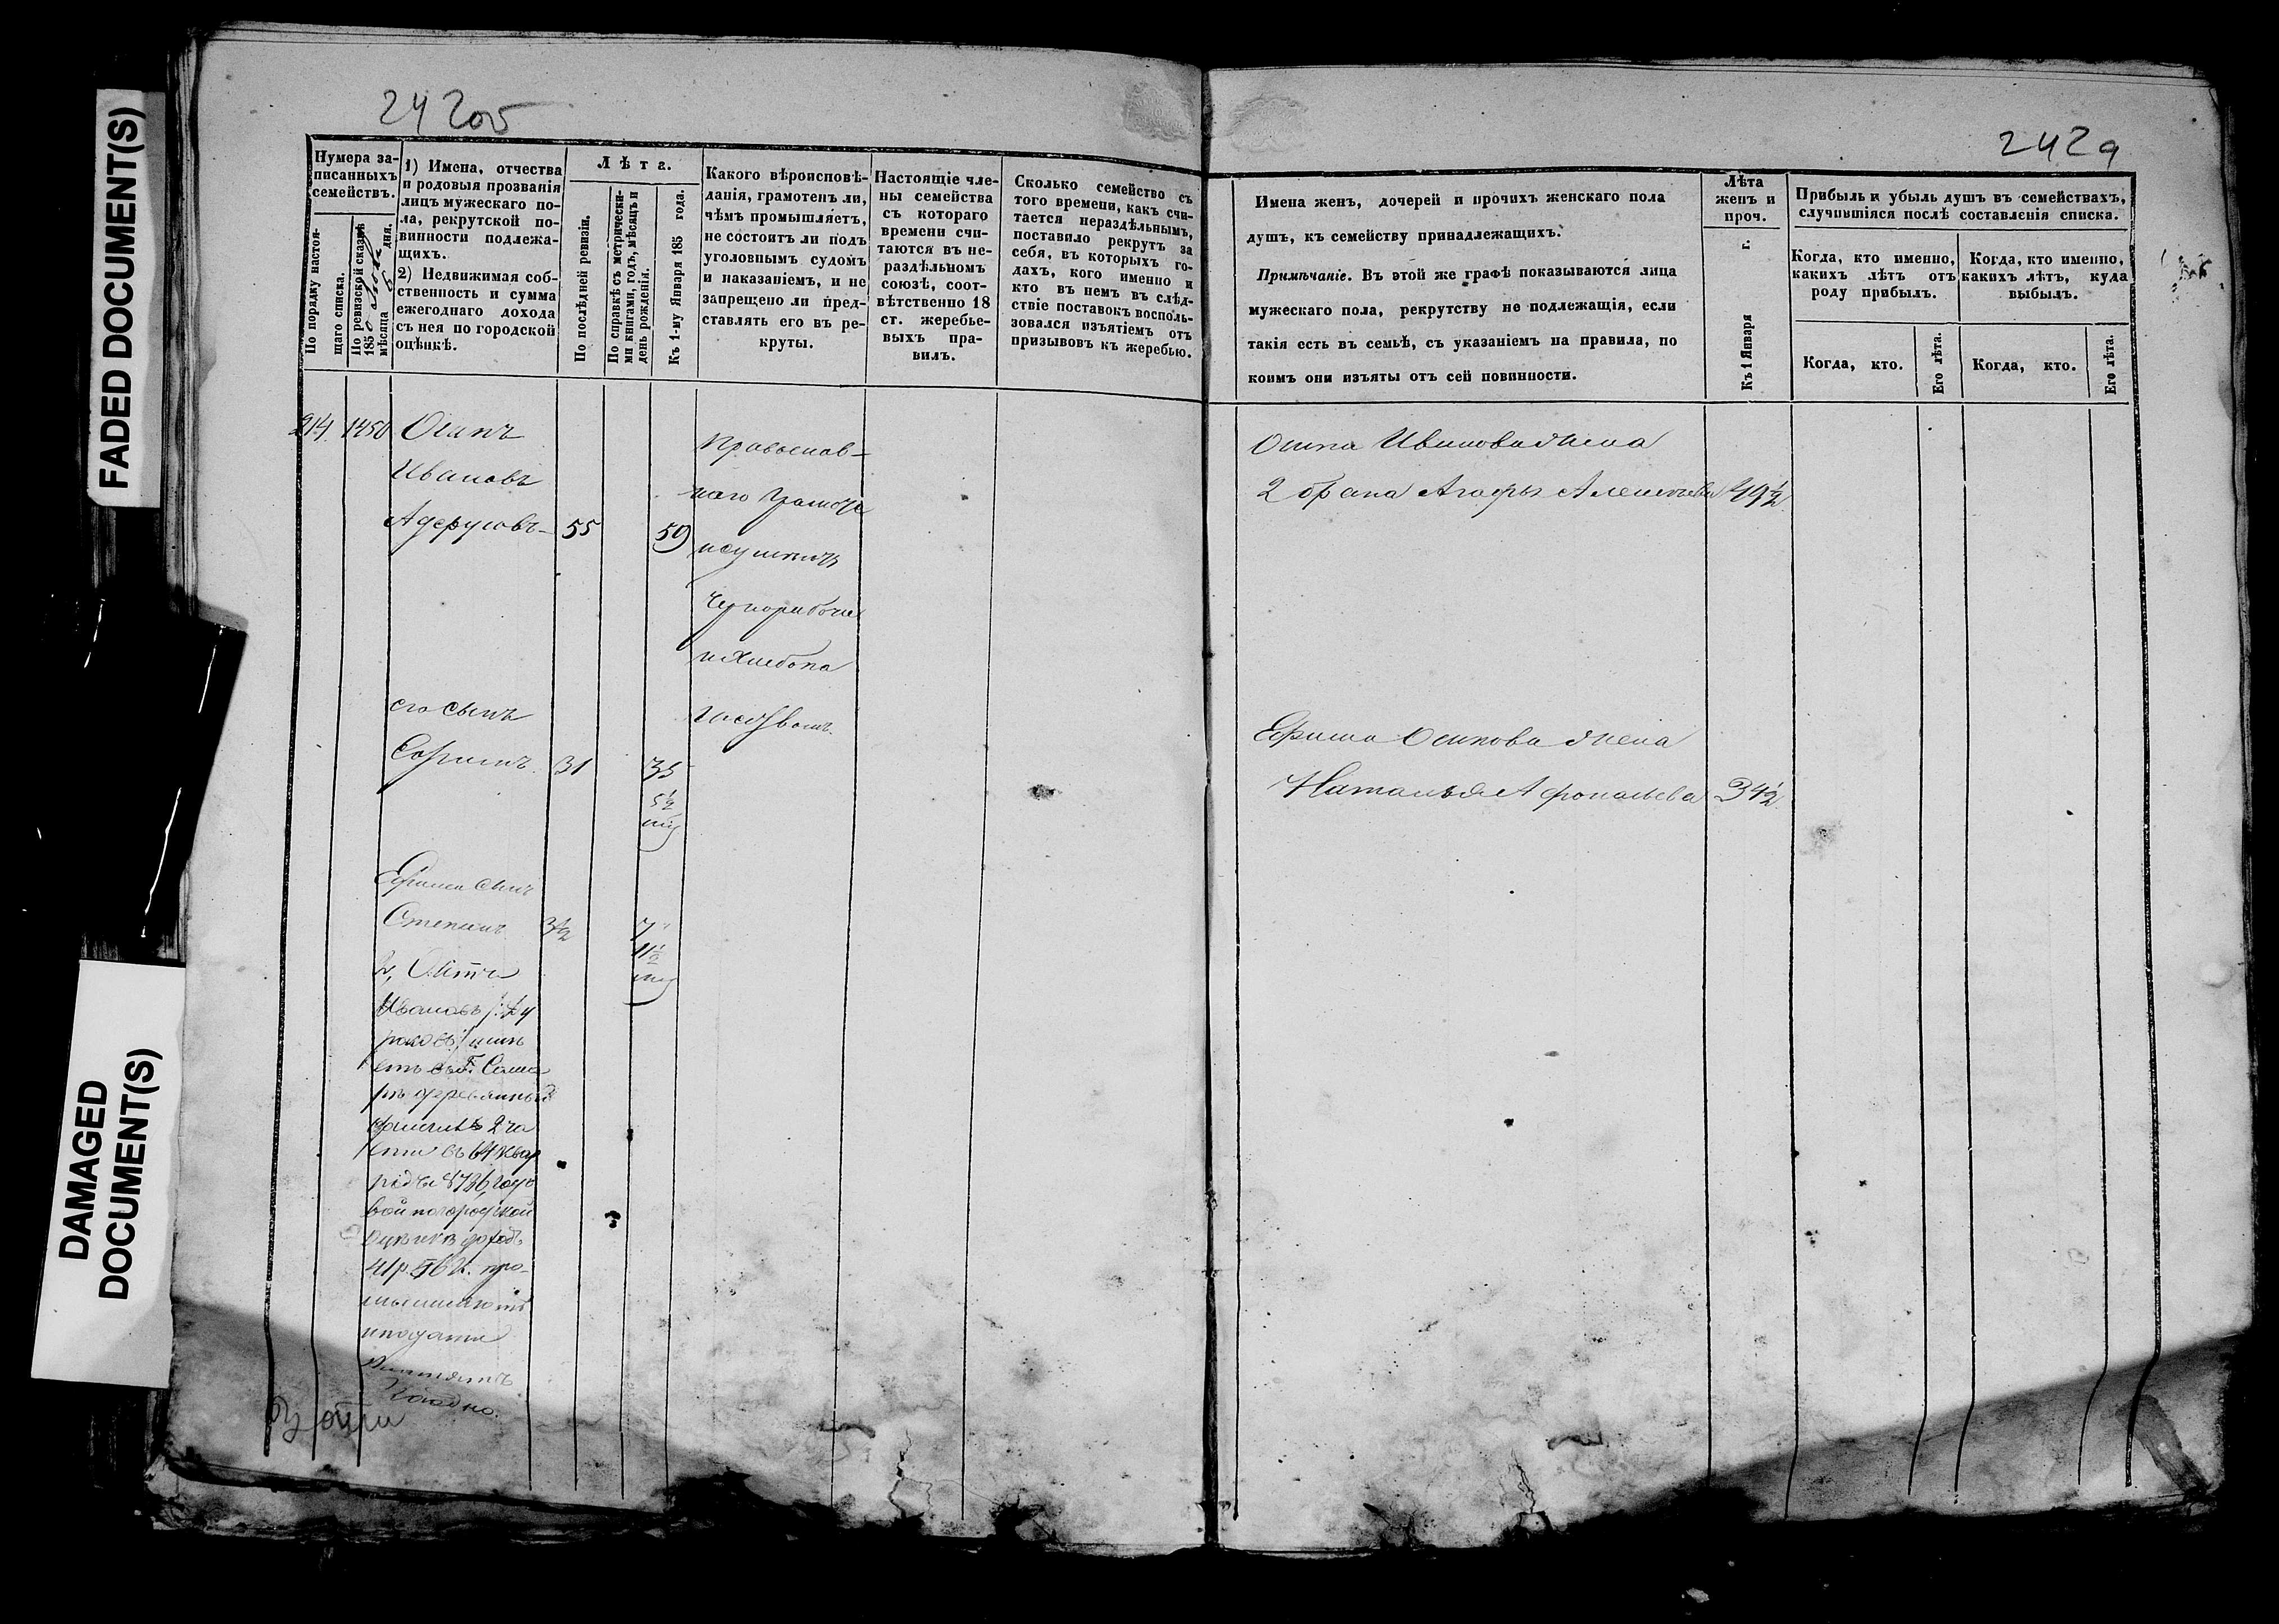 FADED DOCUMENT(S)
DAMAGED
DOCUMENT(S)
24 2об
Нумера за-
писанныхъ
семействъ.
По порядку настоя-
щаго списка.
По ревизской сказкѣ
185
мѣсяца дня.
1) Имена, отчества
и родовыя прозванія
лицъ мужескаго по-
ла, рекрутской по-
винности подлежа-
щихъ.
2) Недвижимая соб-
ственность и сумма
ежегоднаго дохода
съ нея по городской
оцѣнкѣ.
Лѣта.
По послѣдней ревизіи.
По справкѣ съ метрически-
ми книгами, годъ, мѣсяцъ и
день рожденія.
Къ 1-му Января 185 года.
Какого вѣроисповѣ-
данія, грамотенъ ли,
чѣмъ промышляетъ,
не состоитъ ли подъ
уголовнымъ судомъ
и наказаніемъ, и не
запрещено ли пред-
ставлять его въ ре-
круты.
Настоящіе чле-
ны семейства
съ котораго
времени счи-
таются въ не-
раздѣльномъ
союзѣ, соот-
вѣтственно 18
ст. жеребье-
выхъ пра-
вилъ.
Сколько семейство съ
того времени, какъ счи-
тается нераздѣльнымъ,
поставило рекрутъ за
себя, въ которыхъ го-
дахъ, кого именно и
кто въ немъ въ слѣд-
ствіе поставокъ восполь-
зовался изъятіемъ отъ
призывовъ къ жеребью.
214 1450 Осипъ
Ивановъ
55 59
Православ-
наго
чернорабочие
и хлебопа
его сынъ
Ефимъ 31 35
5½
Ефима сынъ
Степанъ 3½ 7
11½
2,
Ивановъ
деревянный
2 ча
сти въ 64 квар
вой по городской
оцѣнкѣ доходъ
41 р. 56 к. про-
мышляютъ
и подати
платятъ
242а
Имена женъ, дочерей и прочихъ женскаго пола
душъ, къ семейству принадлежащихъ.
Примѣчаніе. Въ этой же графѣ показываются лица
мужескаго пола, рекрутству не подлежащія, если
такія есть въ семьѣ, съ указаніемъ на правила, по
коимъ они изъяты отъ сей повинности.
Лѣта
женъ и
проч.
Къ 1 Января г.
Прибыль и убыль душъ въ семействахъ,
случившіяся послѣ составленія списка.
Когда, кто именно,
какихъ лѣтъ отъ
роду прибылъ.
Когда, кто именно,
какихъ лѣтъ, куда
выбылъ.
Когда, кто.
Его лѣта.
Когда, кто.
Его лѣта.
Осипа Иванова жена
2 брака Агафья Алексѣева 49½
Ефима Осипова жена
Наталья Афонасьева 34½